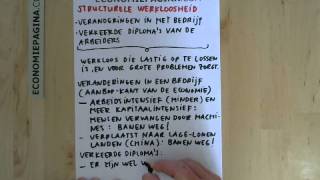 ECONOMIEPAGINA.COM
STRUCTURELE WERKLOOSHEID
- VERANDERINGEN IN HET BEDRIJF
- VERKEERDE DIPLOMA'S VAN DE
ARBEIDERS
WERKLOOS DIE LASTIG OP TE LOSSEN
IS EN VOOR GROTE PROBLEMEN ZORGT.
VERANDERINGEN IN EEN BEDRIJF
(AANBOD-KANT VAN DE ECONOMIE)
- ARBEIDSINTENSIEF (MINDER) EN
MEER KAPITAALINTENSIEF:
MENSEN VERVANGEN DOOR MACHI-
NES: BANEN WEG!
- VERPLAATST NAAR LAGE-LONEN
LANDEN (CHINA): BANEN WEG!
VERKEERDE DIPLOMA'S:
- ER ZIJN WEL
ECONOMIEPAGINA.COM